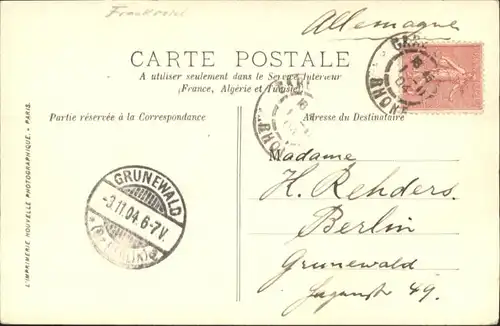 Frankreich
Allemagne
CARTE POSTALE
A utiliser seulement dans le Service Intérieur
(France, Algérie et Tunisie)
Partie réservée à la Correspondance
Adresse du Destinataire
GARE
RHONE
GARE
RHONE
Madame
H. Rehders.
Berlin
Grunewald
49.
GRUNEWALD
-3.11.04.6-7V.
*(BERLIN)*
L'IMPRIMERIE NOUVELLE PHOTOGRAPHIQUE - PARIS.